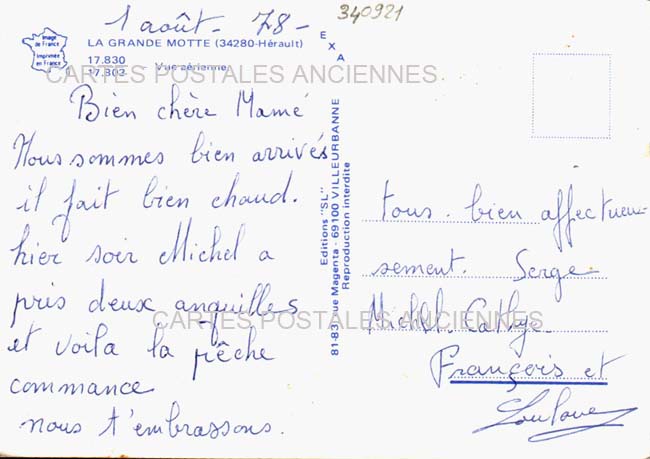 1 août - 78 -
340921
Image
de France
Imprimée
en France
LA GRANDE MOTTE (34280-Hérault)
17.830
17.803 - Vue aérienne
EXA
CARTES POSTALES ANCIENNES
Bien chère Mamé
Nous sommes bien arrivés
il fait bien chaud.
hier soir Michel a
pris deux anguilles
et voila la pêche
commance
nous t'embrassons.
Editions "SL"
81-83, rue Magenta - 69100 VILLEURBANNE
Reproduction interdite
tous. bien affectueu-
sement. Serge
Michel. Cathye
François et
Louloue
CARTES POSTALES ANCIENNES